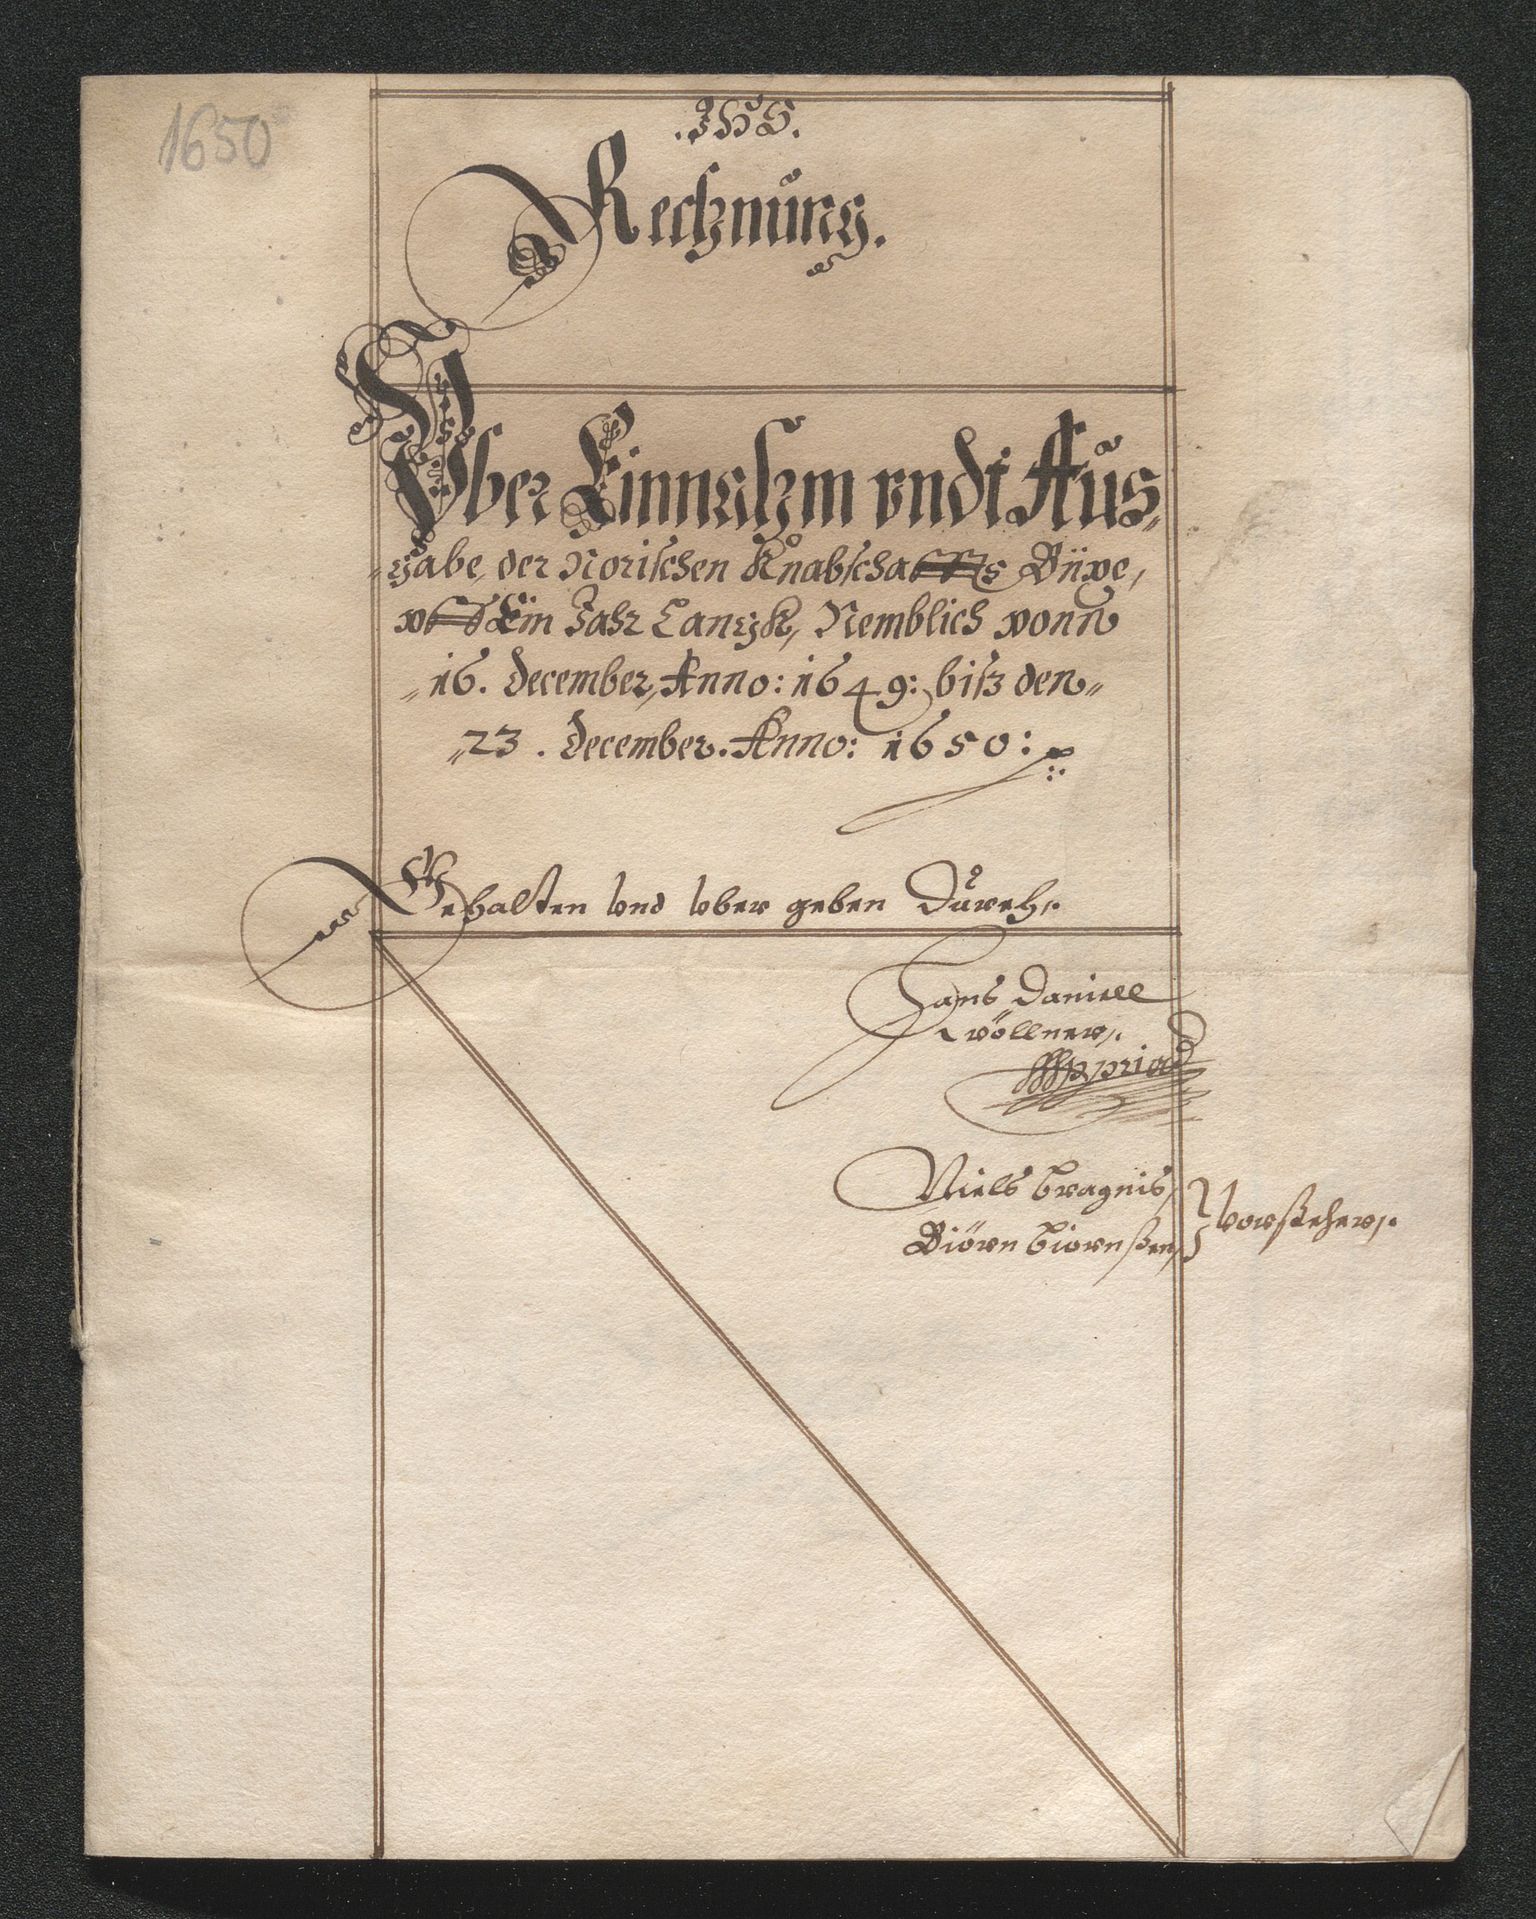 1650
.JHS.
Rechnung.
Vber Einnahm vndt Aus„
„gabe, der Norischen Knabschaffts Büxe,
vff Ein Jahr Langk, Nemblich vonn
„16. december, Anno: 1649: biß den„
„23. december. Anno: 1650:
Gehalten vnd vber geben Durch.
Hans Daniell
Wöllner.
Mppria
Niels Cragnis,
Biörn Biornßen, Vorsteher.